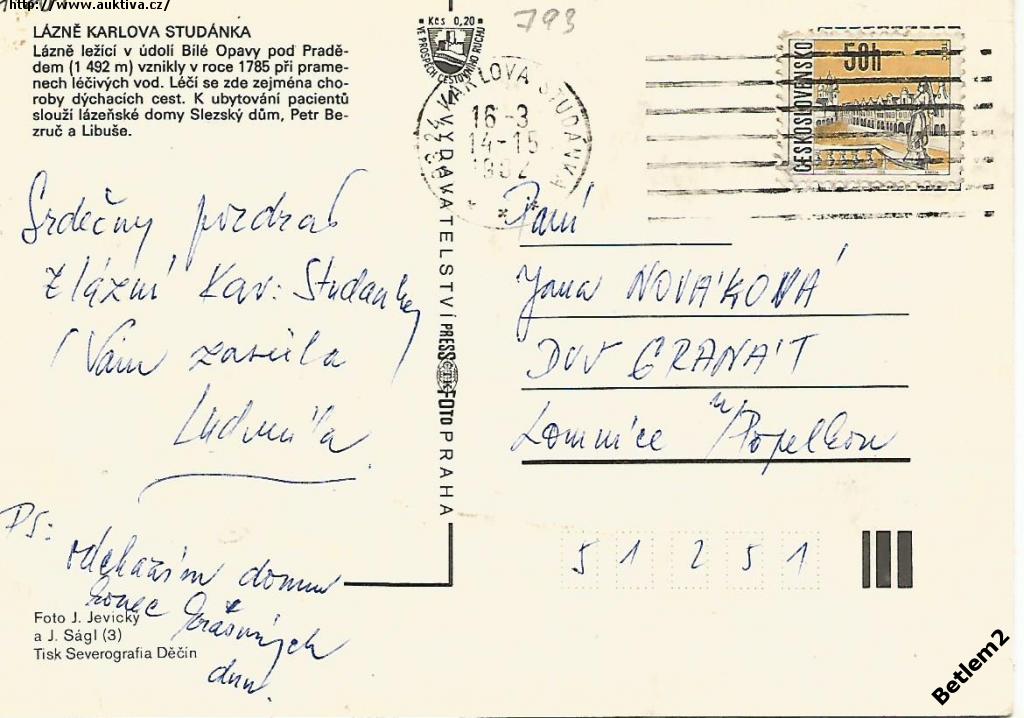 http://www.auktiva.cz/
LÁZNĚ KARLOVA STUDÁNKA
Lázně ležící v údolí Bílé Opavy pod Pradě-
dem (1 492 m) vznikly v roce 1785 při prame-
nech léčivých vod. Léčí se zde zejména cho-
roby dýchacích cest. K ubytování pacientů
slouží lázeňské domy Slezský dům, Petr Be-
zruč a Libuše.
Srdečný pozdrav
z lázní Kar. Studánky
Vám zasílá
Ludmila
PS:
odcházím domu
konec krásných
dnu.
Foto J. Jevický
a J. Ságl (3)
Tisk Severografia Děčín
Kčs 0,20
VE PROSPĚCH CESTOVNÍHO RUCHU
VYDAVATELSTVÍ PRESSFOTO PRAHA
ČTK
793
KARLOVA STUDÁNKA
16-3
14-15
1992
50h
ČESKOSLOVENSKO
Paní
Jana NOVÁKOVÁ
DUV GRANÁT
Lomnice n/Popelkou
51 251
Betlem2